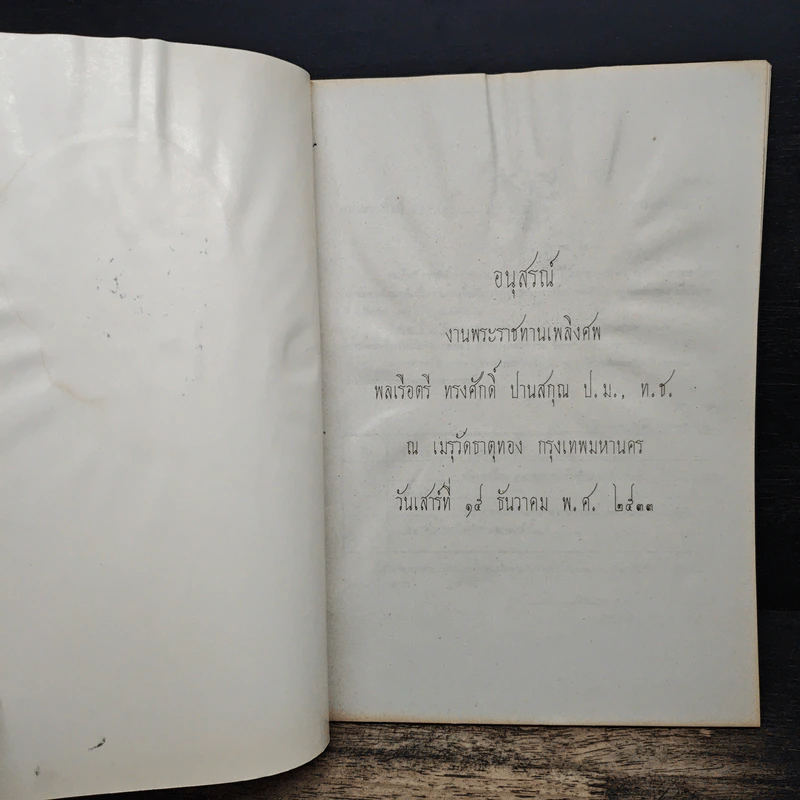 อนุสรณ์
งานพระราชทานเพลิงศพ
พลเรือตรี ทรงศักดิ์ ปานสกุณ ป.ม., ท.ช.
ณ เมรุวัดธาตุทอง กรุงเทพมหานคร
วันเสาร์ที่ ๑๕ ธันวาคม พ.ศ. ๒๕๓๓